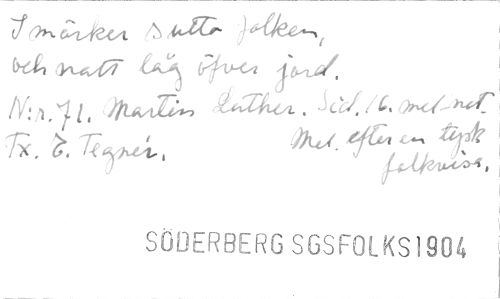 I mörker sutto folken,
och natt låg öfver jord.
N:r. 71. Martin Luther. Sid. 16. mel-not.
Tx. E. Tegnér. Mel. efter en tysk
folkvisa.
SÖDERBERG SGSFOLKS1904